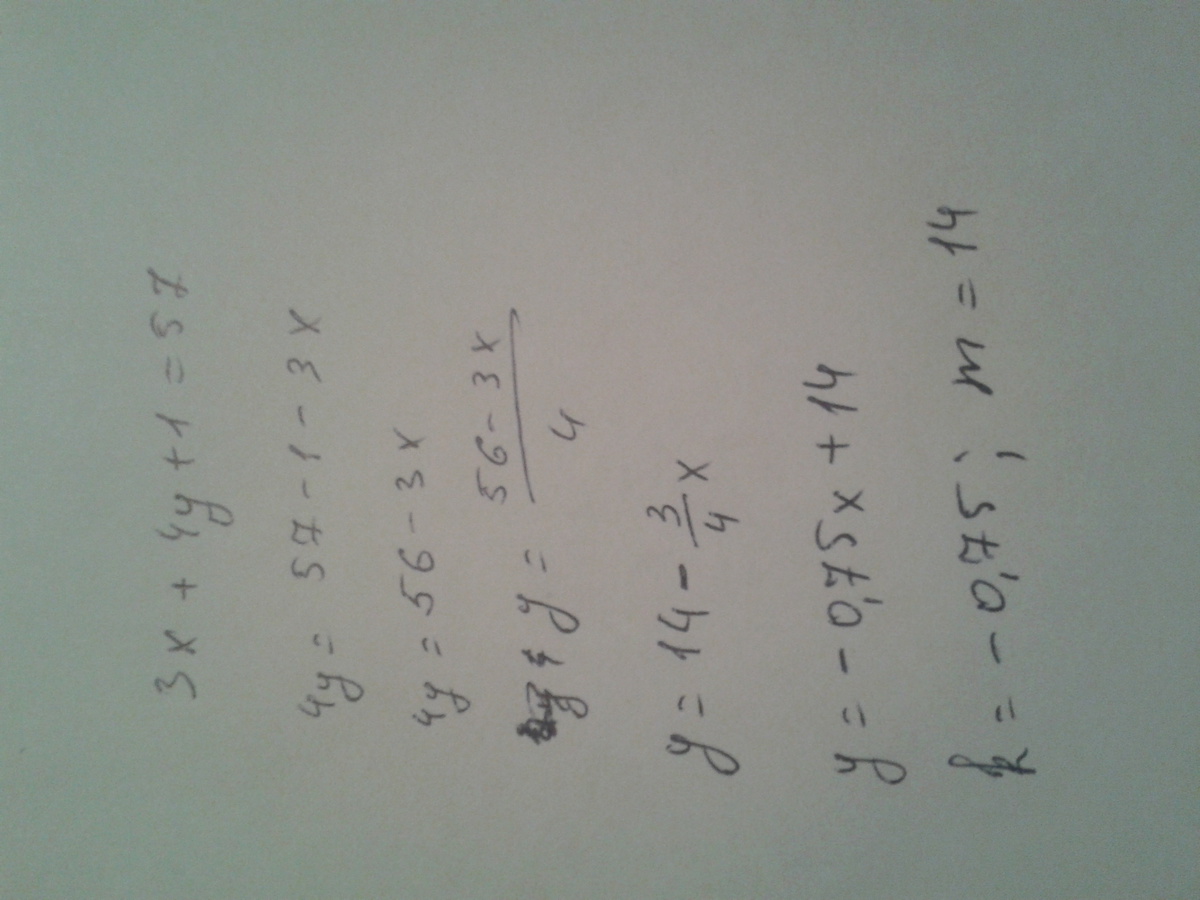 3x + 4y + 1 = 57
4y = 57 - 1 - 3x
4y = 56 - 3x
y = \frac{56 - 3x}{4}
y = 14 - \frac{3}{4}x
y = -0,75x + 14
k = -0,75; m = 14